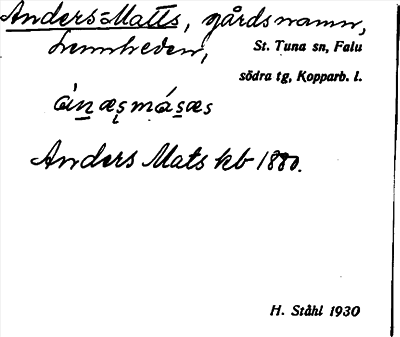 Anders-Matts, gårdsnamn,
Lennheden,
St. Tuna sn, Falu
södra tg, Kopparb. l.
Anders Mats kb 1880.
H. Ståhl 1930